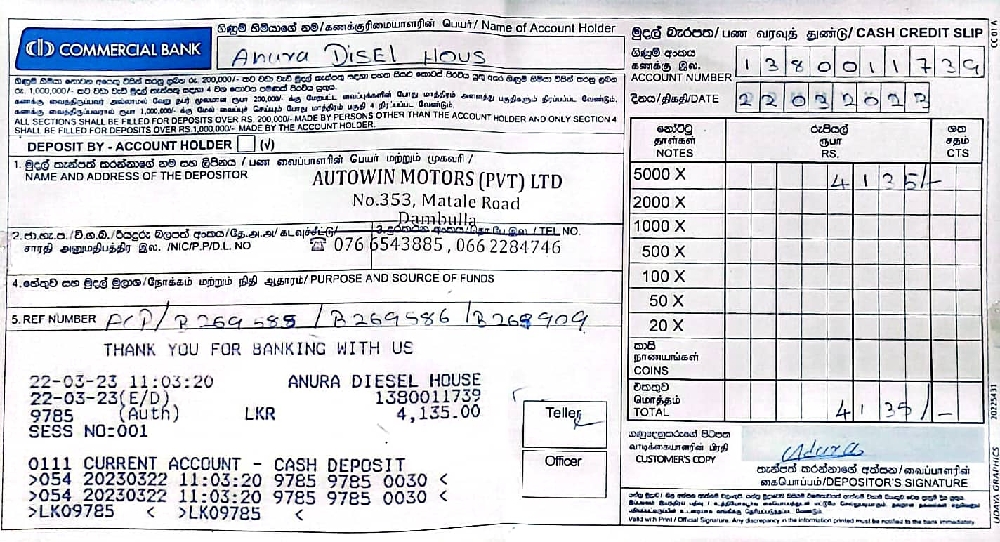 COMMERCIAL BANK
ගිණුම් හිමියාගේ නම/கணக்குரிமையாளரின் பெயர்/ Name of Account Holder
Anura DISEL HOUS
ALL SECTIONS SHALL BE FILLED FOR DEPOSITS OVER RS. 200,000/- MADE BY PERSONS OTHER THAN THE ACCOUNT HOLDER AND ONLY SECTION 4
SHALL BE FILLED FOR DEPOSITS OVER RS.1,000,000/- MADE BY THE ACCOUNT HOLDER.
DEPOSIT BY - ACCOUNT HOLDER (√)
1. මුදල් තැන්පත් කරන්නාගේ නම සහ ලිපිනය / பண வைப்பாளரின் பெயர் மற்றும் முகவரி /
NAME AND ADDRESS OF THE DEPOSITOR
AUTOWIN MOTORS (PVT) LTD
No.353, Matale Road
Dambulla
3. TEL NO.
சாரதி அனுமதிபத்திர இல. /NIC/P.P/D.L. NO
☎ 076 6543885, 066 2284746
4. හේතුව සහ මුදල් මූලාශ/நோக்கம் மற்றும் நிதி ஆதாரம்/ PURPOSE AND SOURCE OF FUNDS
5. REF NUMBER A/P/ B 269588 / B 269586 / B 268909
THANK YOU FOR BANKING WITH US
22-03-23 11:03:20 ANURA DIESEL HOUSE
22-03-23(E/D) 1380011739
9785 (Auth) LKR 4,135.00
SESS NO:001
0111 CURRENT ACCOUNT - CASH DEPOSIT
>054 20230322 11:03:20 9785 9785 0030 <
>054 20230322 11:03:20 9785 9785 0030 <
>LK09785 < >LK09785 <
Teller
Officer
මුදල් බැරපත/ பண வரவுத் துண்டு/ CASH CREDIT SLIP
CC 01 A
ගිණුම් අංකය
கணக்கு இல.
ACCOUNT NUMBER 1380011739
දිනය/திகதி/DATE 22032023
නෝට්ටු රුපියල් ශත
தாள்கள் ரூபா சதம்
NOTES RS. CTS
5000 X 4135/-
2000 X
1000 X
500 X
100 X
50 X
20 X
කාසි
நாணயங்கள்
COINS
එකතුව
மொத்தம்
TOTAL 4135/-
ගනුදෙනුකරුගේ පිටපත
வாடிக்கையாளரின் பிரதி
CUSTOMER'S COPY
තැන්පත් කරන්නාගේ අත්සන/வைப்பாளரின்
கையொப்பம்/DEPOSITOR'S SIGNATURE
Valid with Print / Official Signature. Any discrepancy in the information printed must be notified to the bank immediately.
UDAYA GRAPHICS
20225431